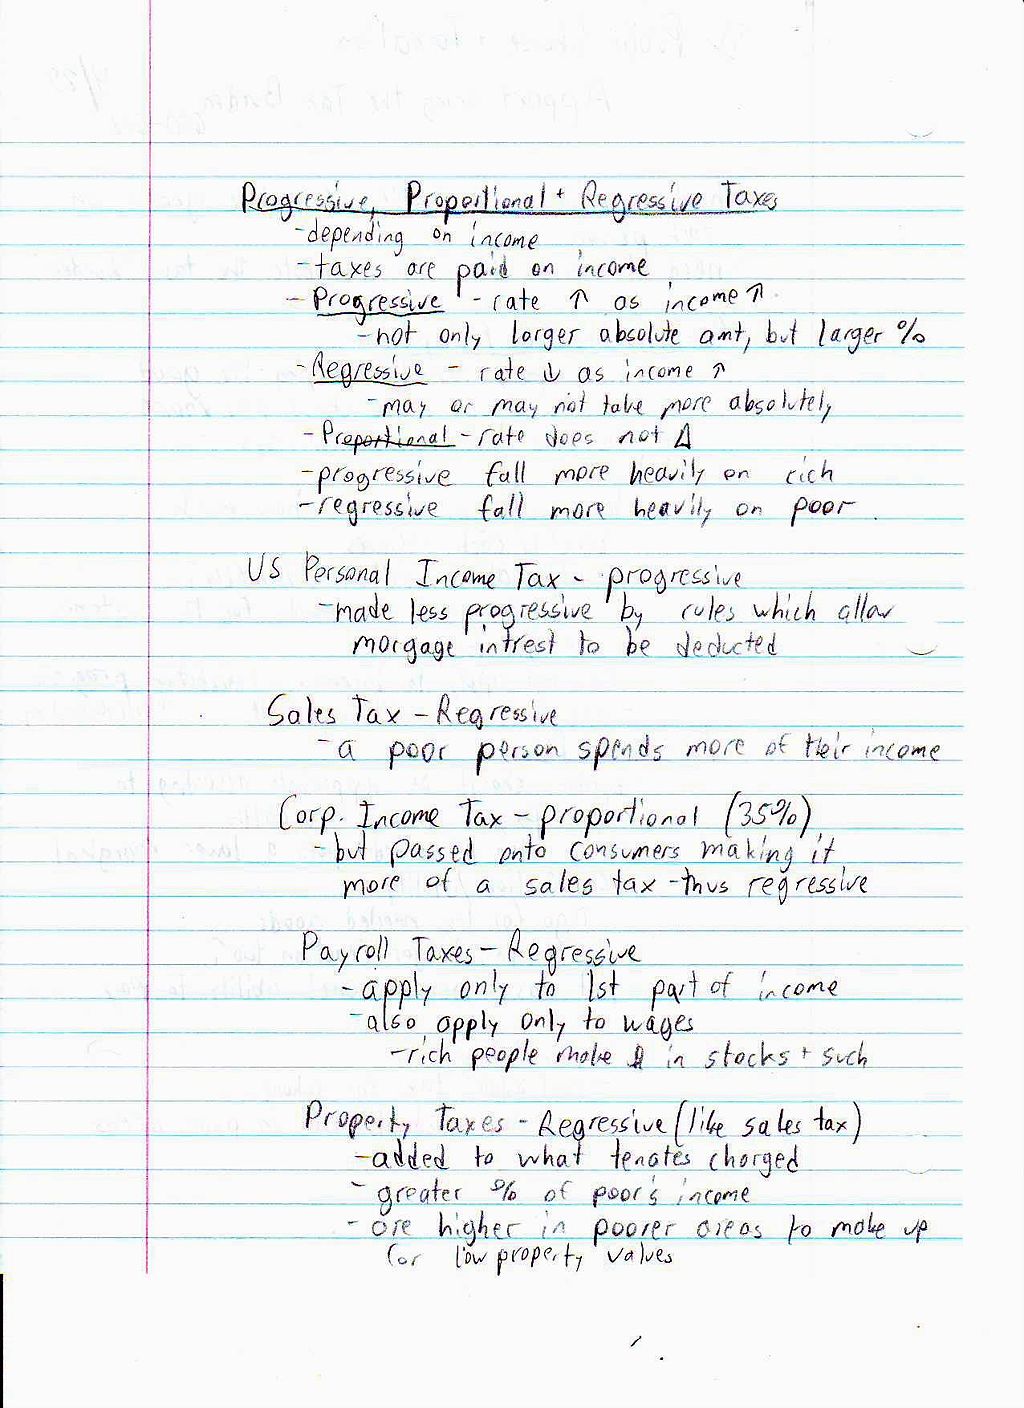 Progressive, Proportional + Regressive Taxes
-depending on income
-taxes are paid on income
- Progressive - rate ↑ as income ↑
-not only larger absolute amt, but larger %
-Regressive - rate ↓ as income ↑
-may or may not take more absolutely
-Proportional - rate does not Δ
-progressive fall more heavily on rich
-regressive fall more heavily on poor
US Personal Income Tax - progressive
-made less progressive by rules which allow
morgage intrest to be deducted
Sales Tax - Regressive
-a poor person spends more of their income
Corp. Income Tax - proportional (35%)
-but passed onto consumers making it
more of a sales tax -thus regressive
Payroll Taxes - Regressive
-apply only to 1st part of income
-also apply only to wages
-rich people make $ in stocks + such
Property Taxes - Regressive (like sales tax)
-added to what tenates charged
- greater % of poor's income
- are higher in poorer areas to make up
for low property values